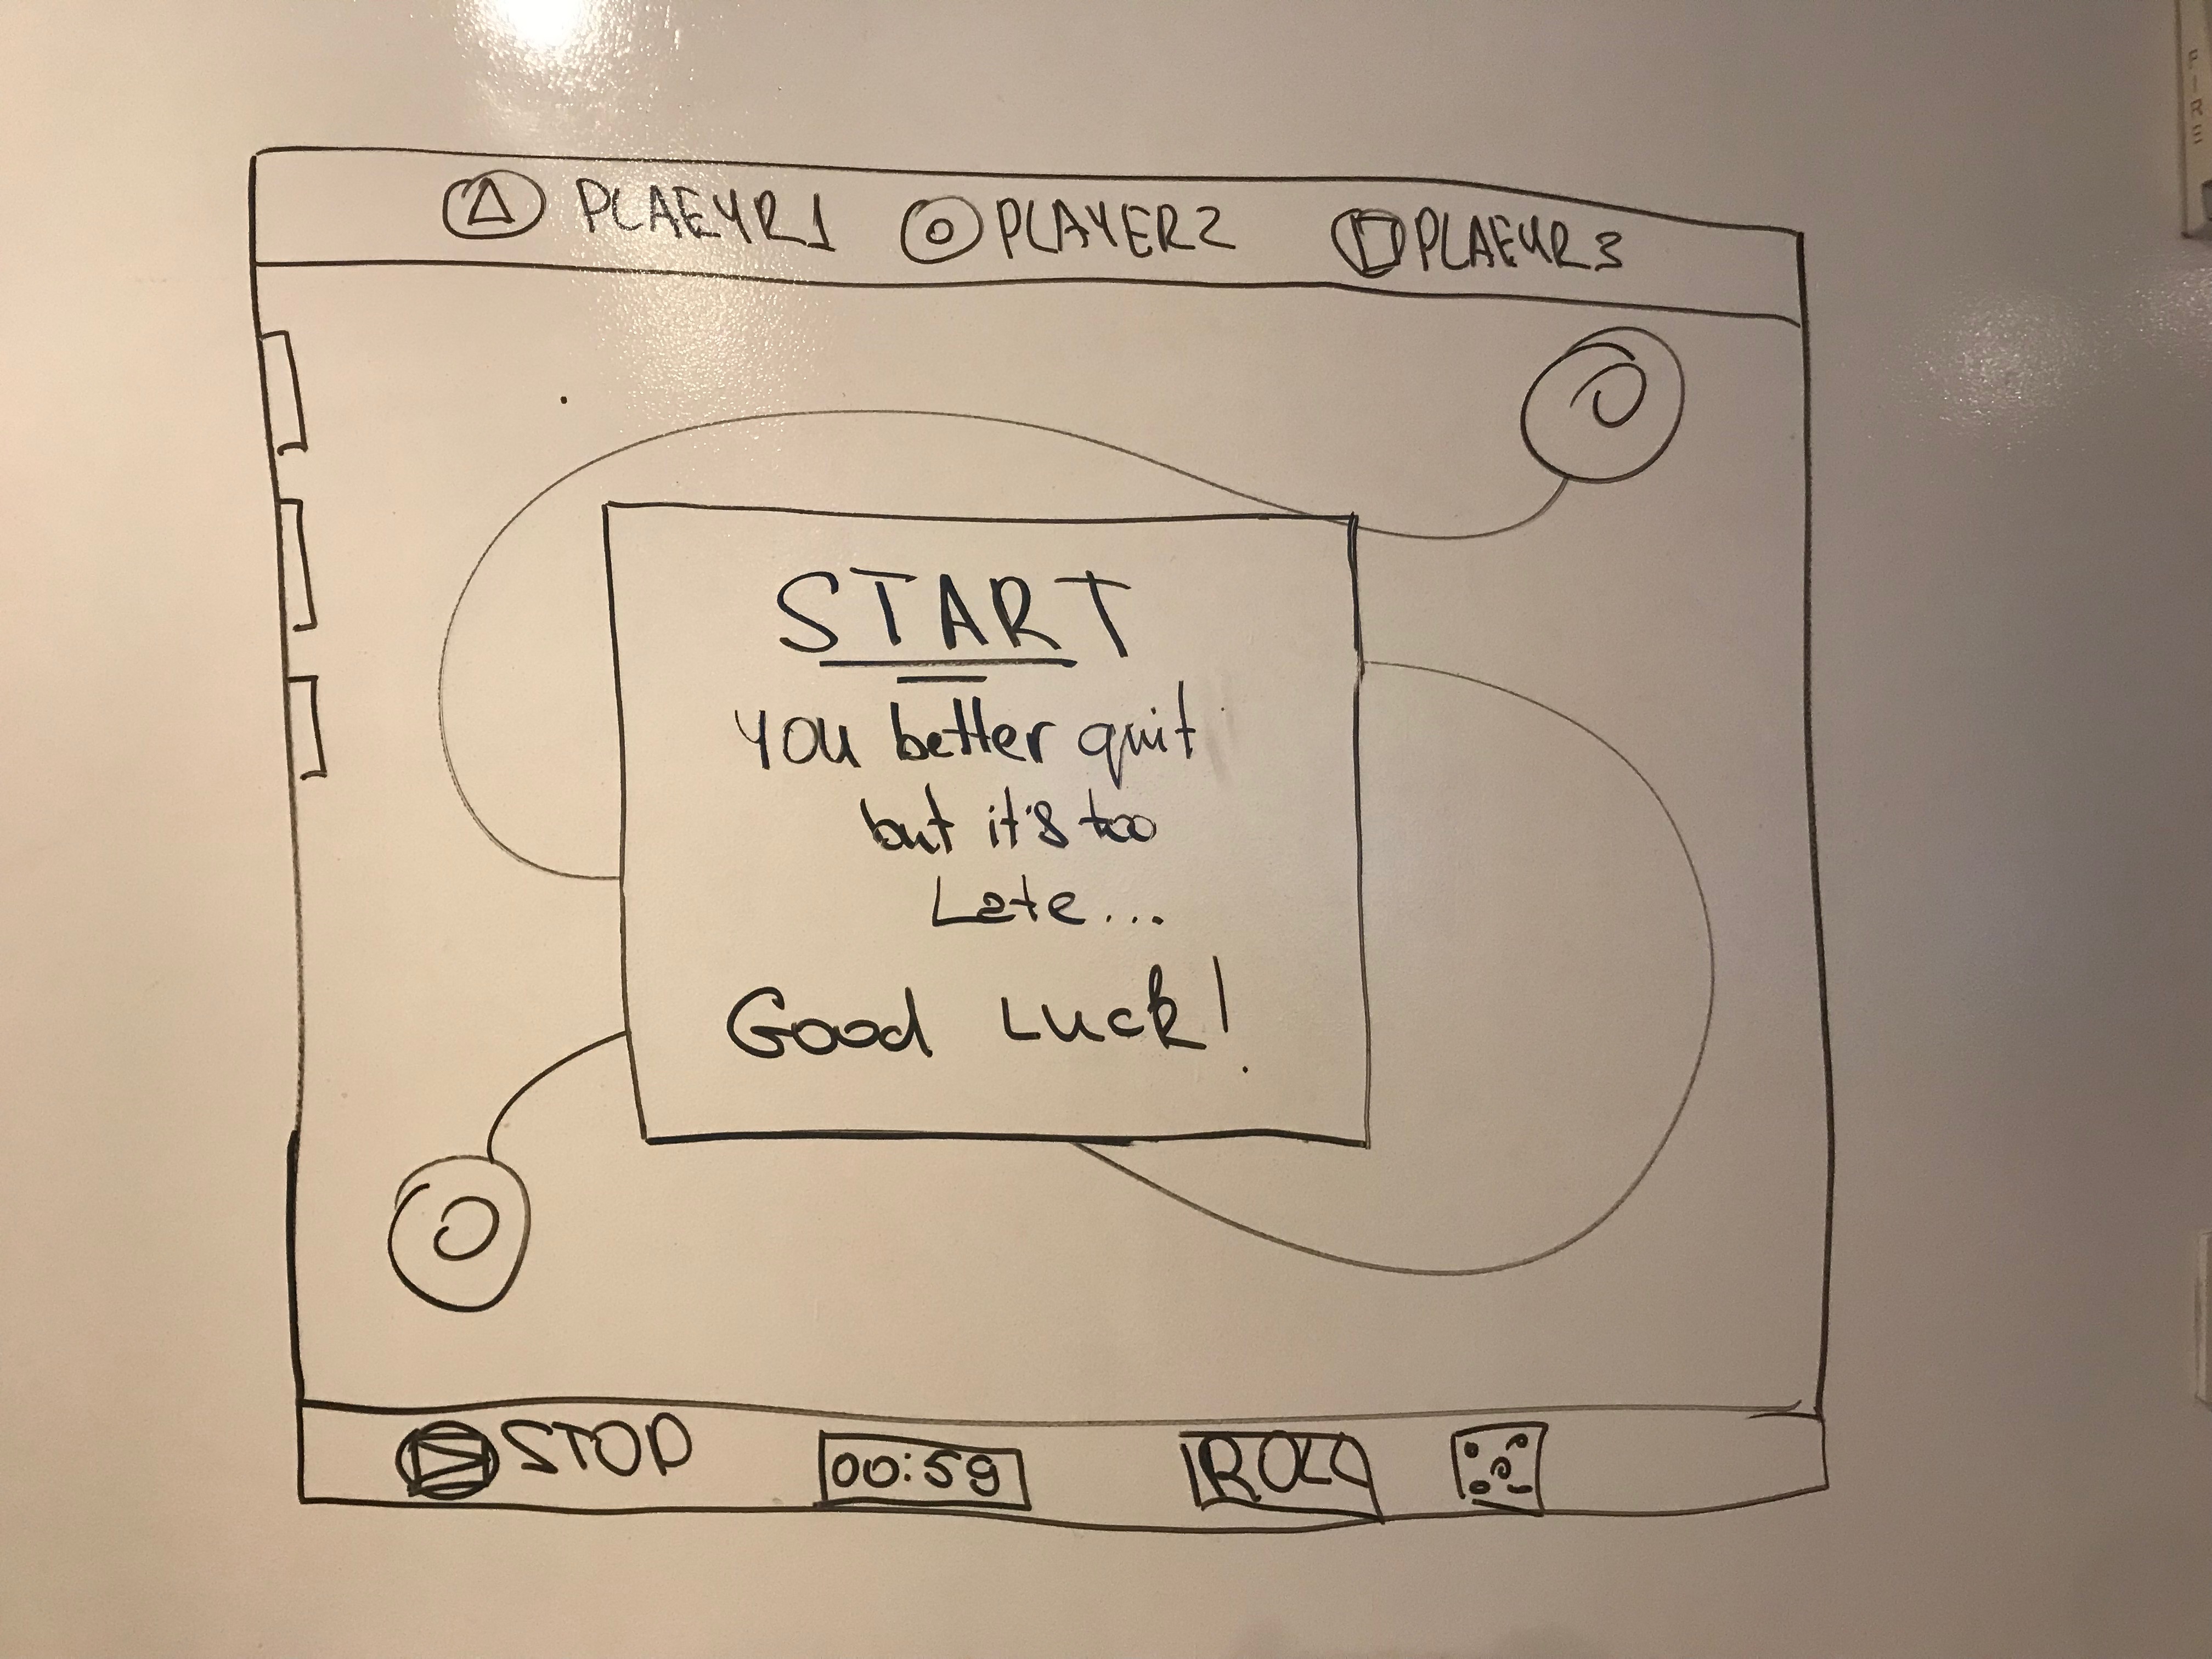 PLAEYR1 PLAYER2 PLAEYR3
START
you better quit
but it's too
Late...
Good Luck!
STOP 00:59 ROLL